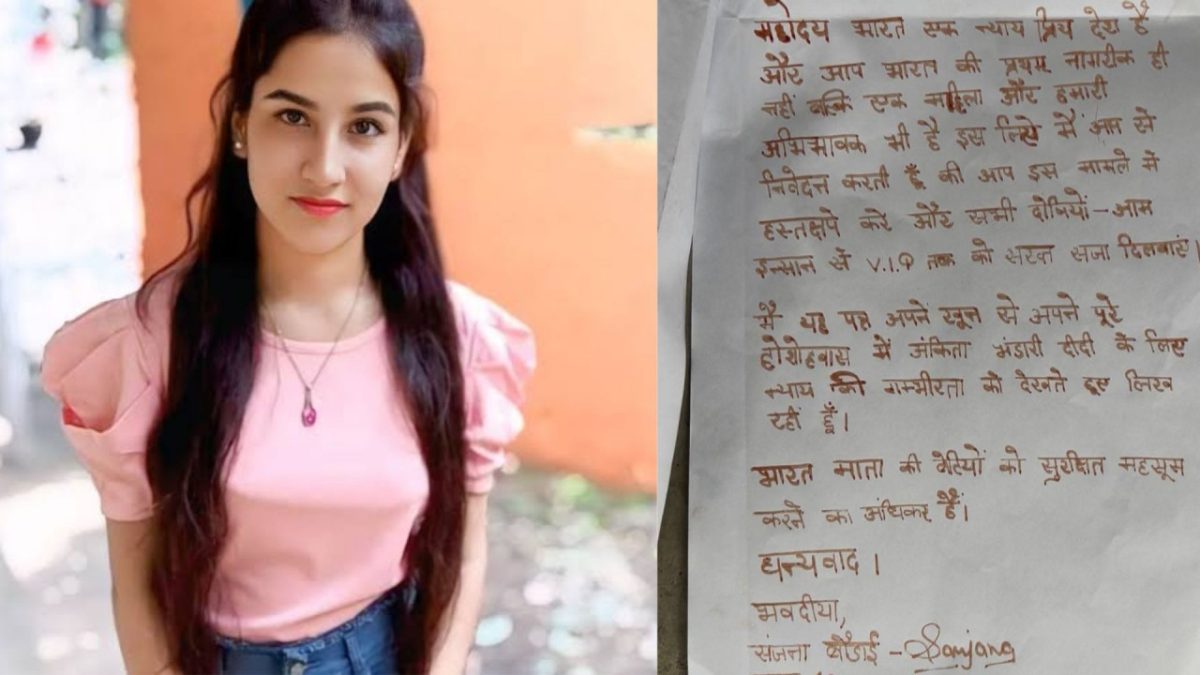 महोदय भारत एक न्याय प्रिय देश है
और आप भारत की प्रथम नागरीक ही
नहीं बल्कि एक महिला और हमारी
अभिभावक भी है इस लिये मैं आप से
निवेदन करती हूँ की आप इस मामले में
हस्तक्षपे करे और सभी दोषियों - आम
इन्सान से V.I.P तक को सख्त सजा दिलवाएं।
मैं यह पत्र अपने खून से अपने पूरे
होशोहवास में अंकिता भंडारी दीदी के लिए
न्याय की गम्भीरता को देखते हुए लिख
रहीं हूँ।
भारत माता की बेटियों को सुरक्षित महसूस
करने का अधिकार हैं।
धन्यवाद।
भवदीया,
संजना - Sanjana